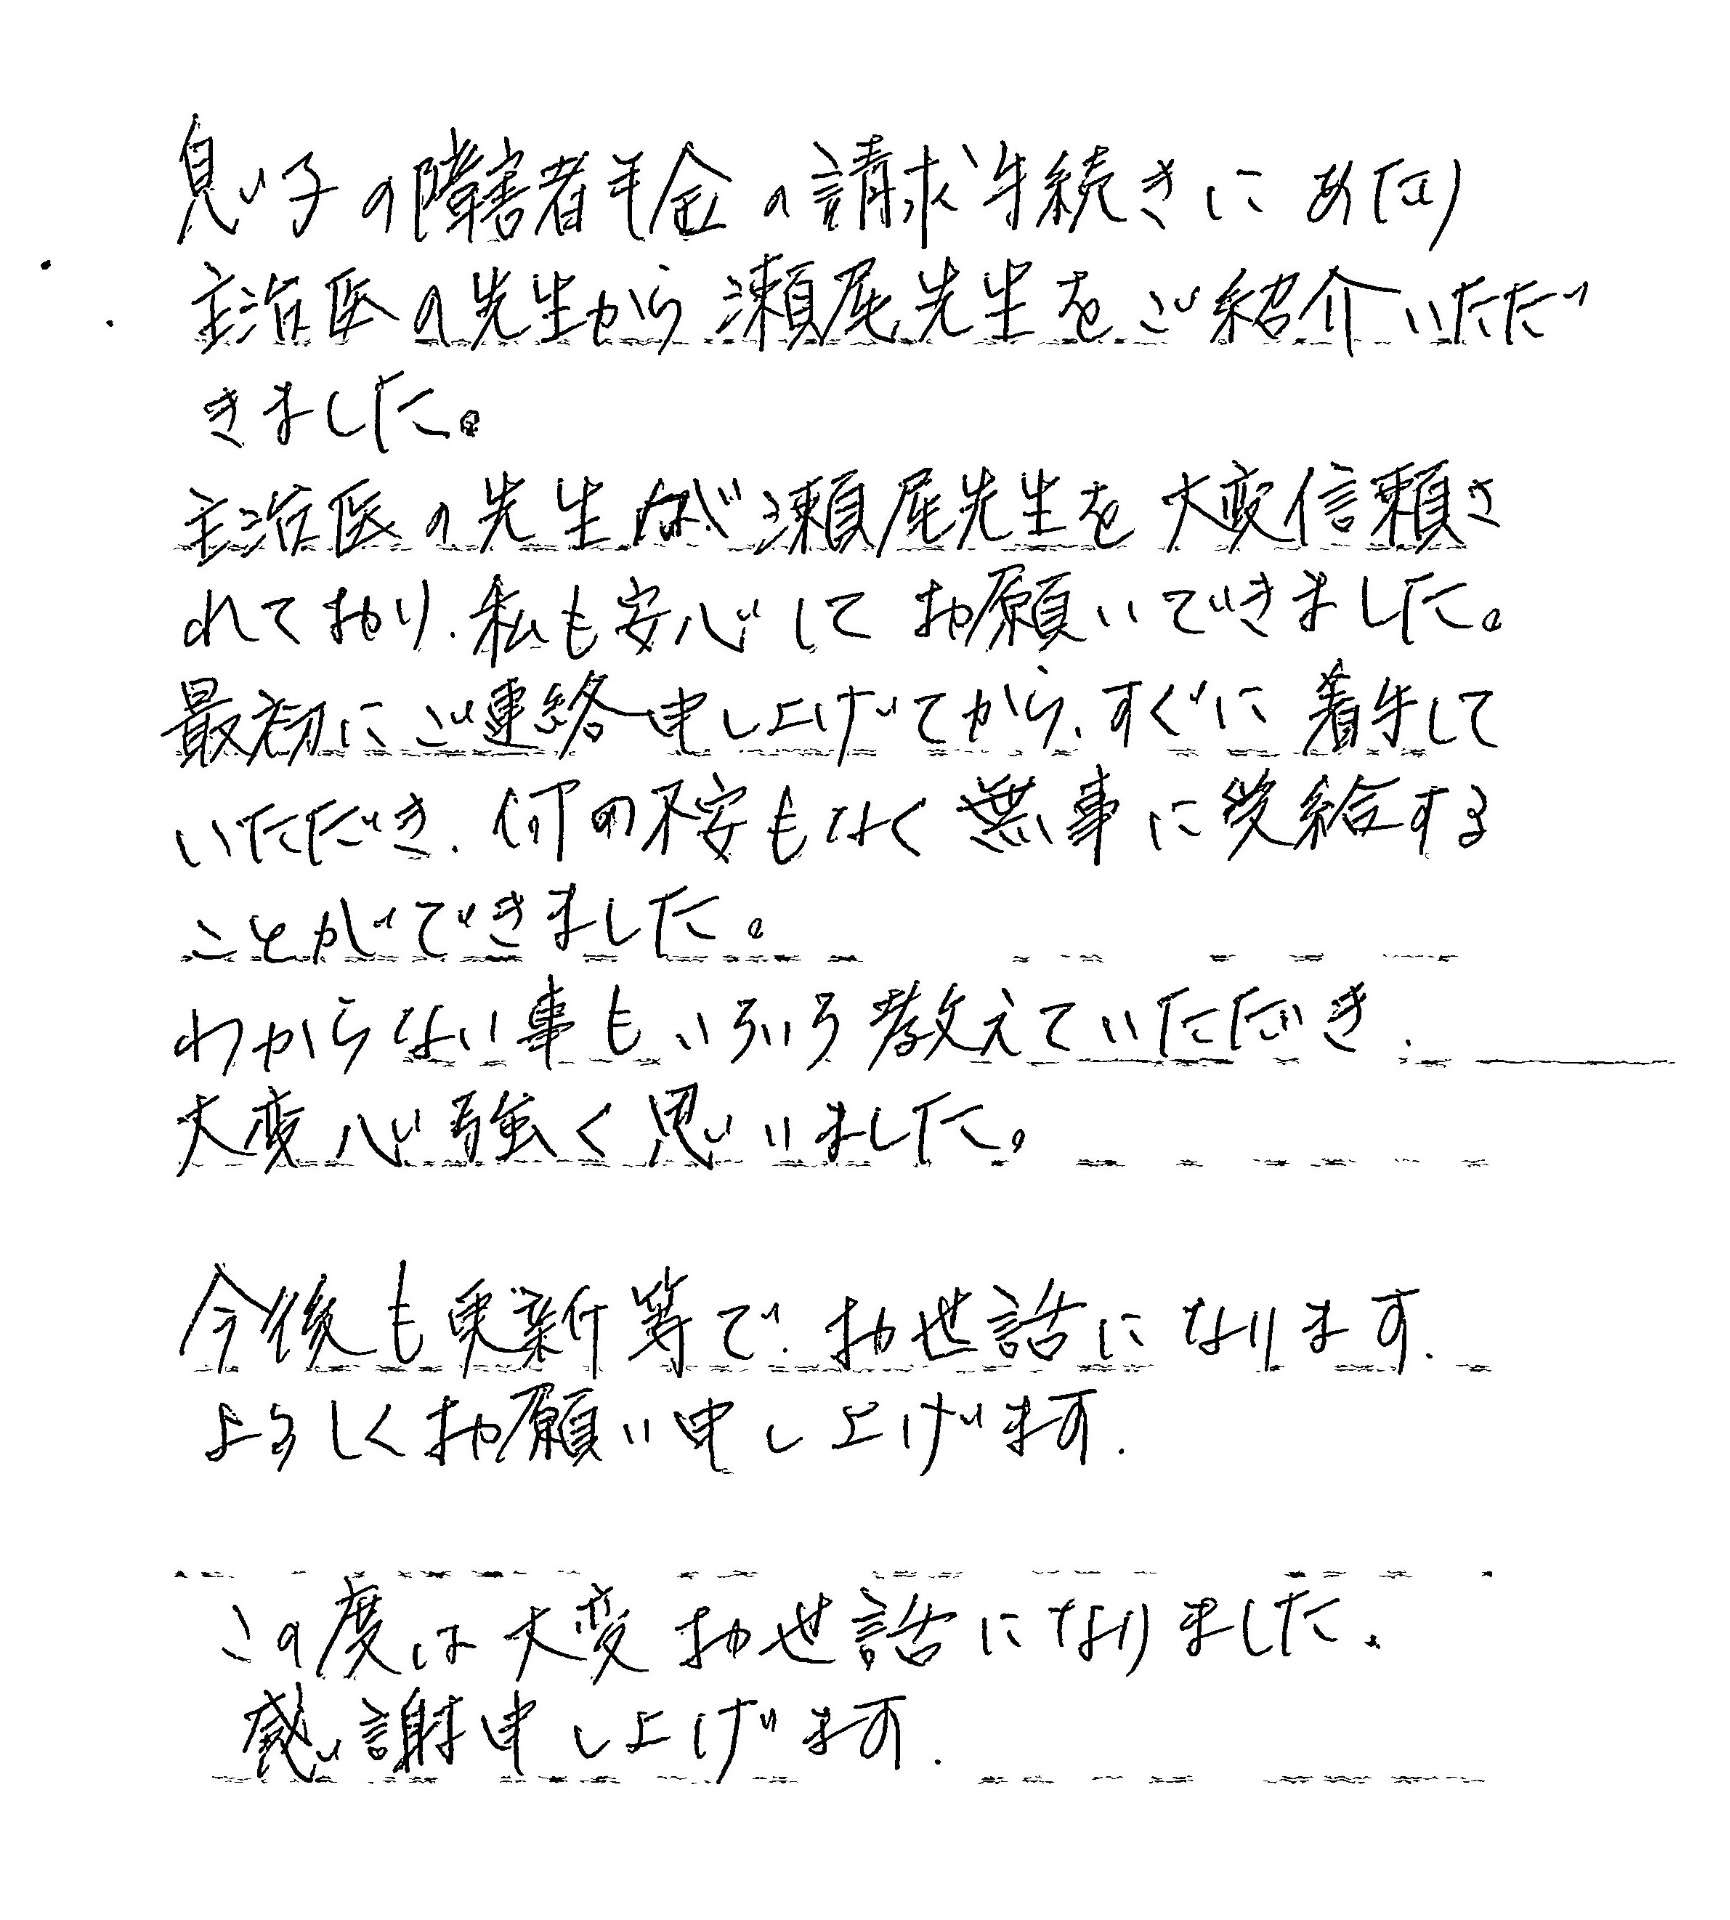 息子の障害者年金の請求手続きにあたり
主治医の先生から瀬尾先生をご紹介いただ
きました。
主治医の先生が瀬尾先生を大変信頼さ
れており、私も安心してお願いできました。
最初にご連絡申し上げてから、すぐに着手して
いただき、何の不安もなく無事に受給する
ことができました。
わからない事もいろいろ教えていただき、
大変心強く思いました。
今後も更新等で、お世話になります。
よろしくお願い申し上げます。
この度は大変お世話になりました。
感謝申し上げます。